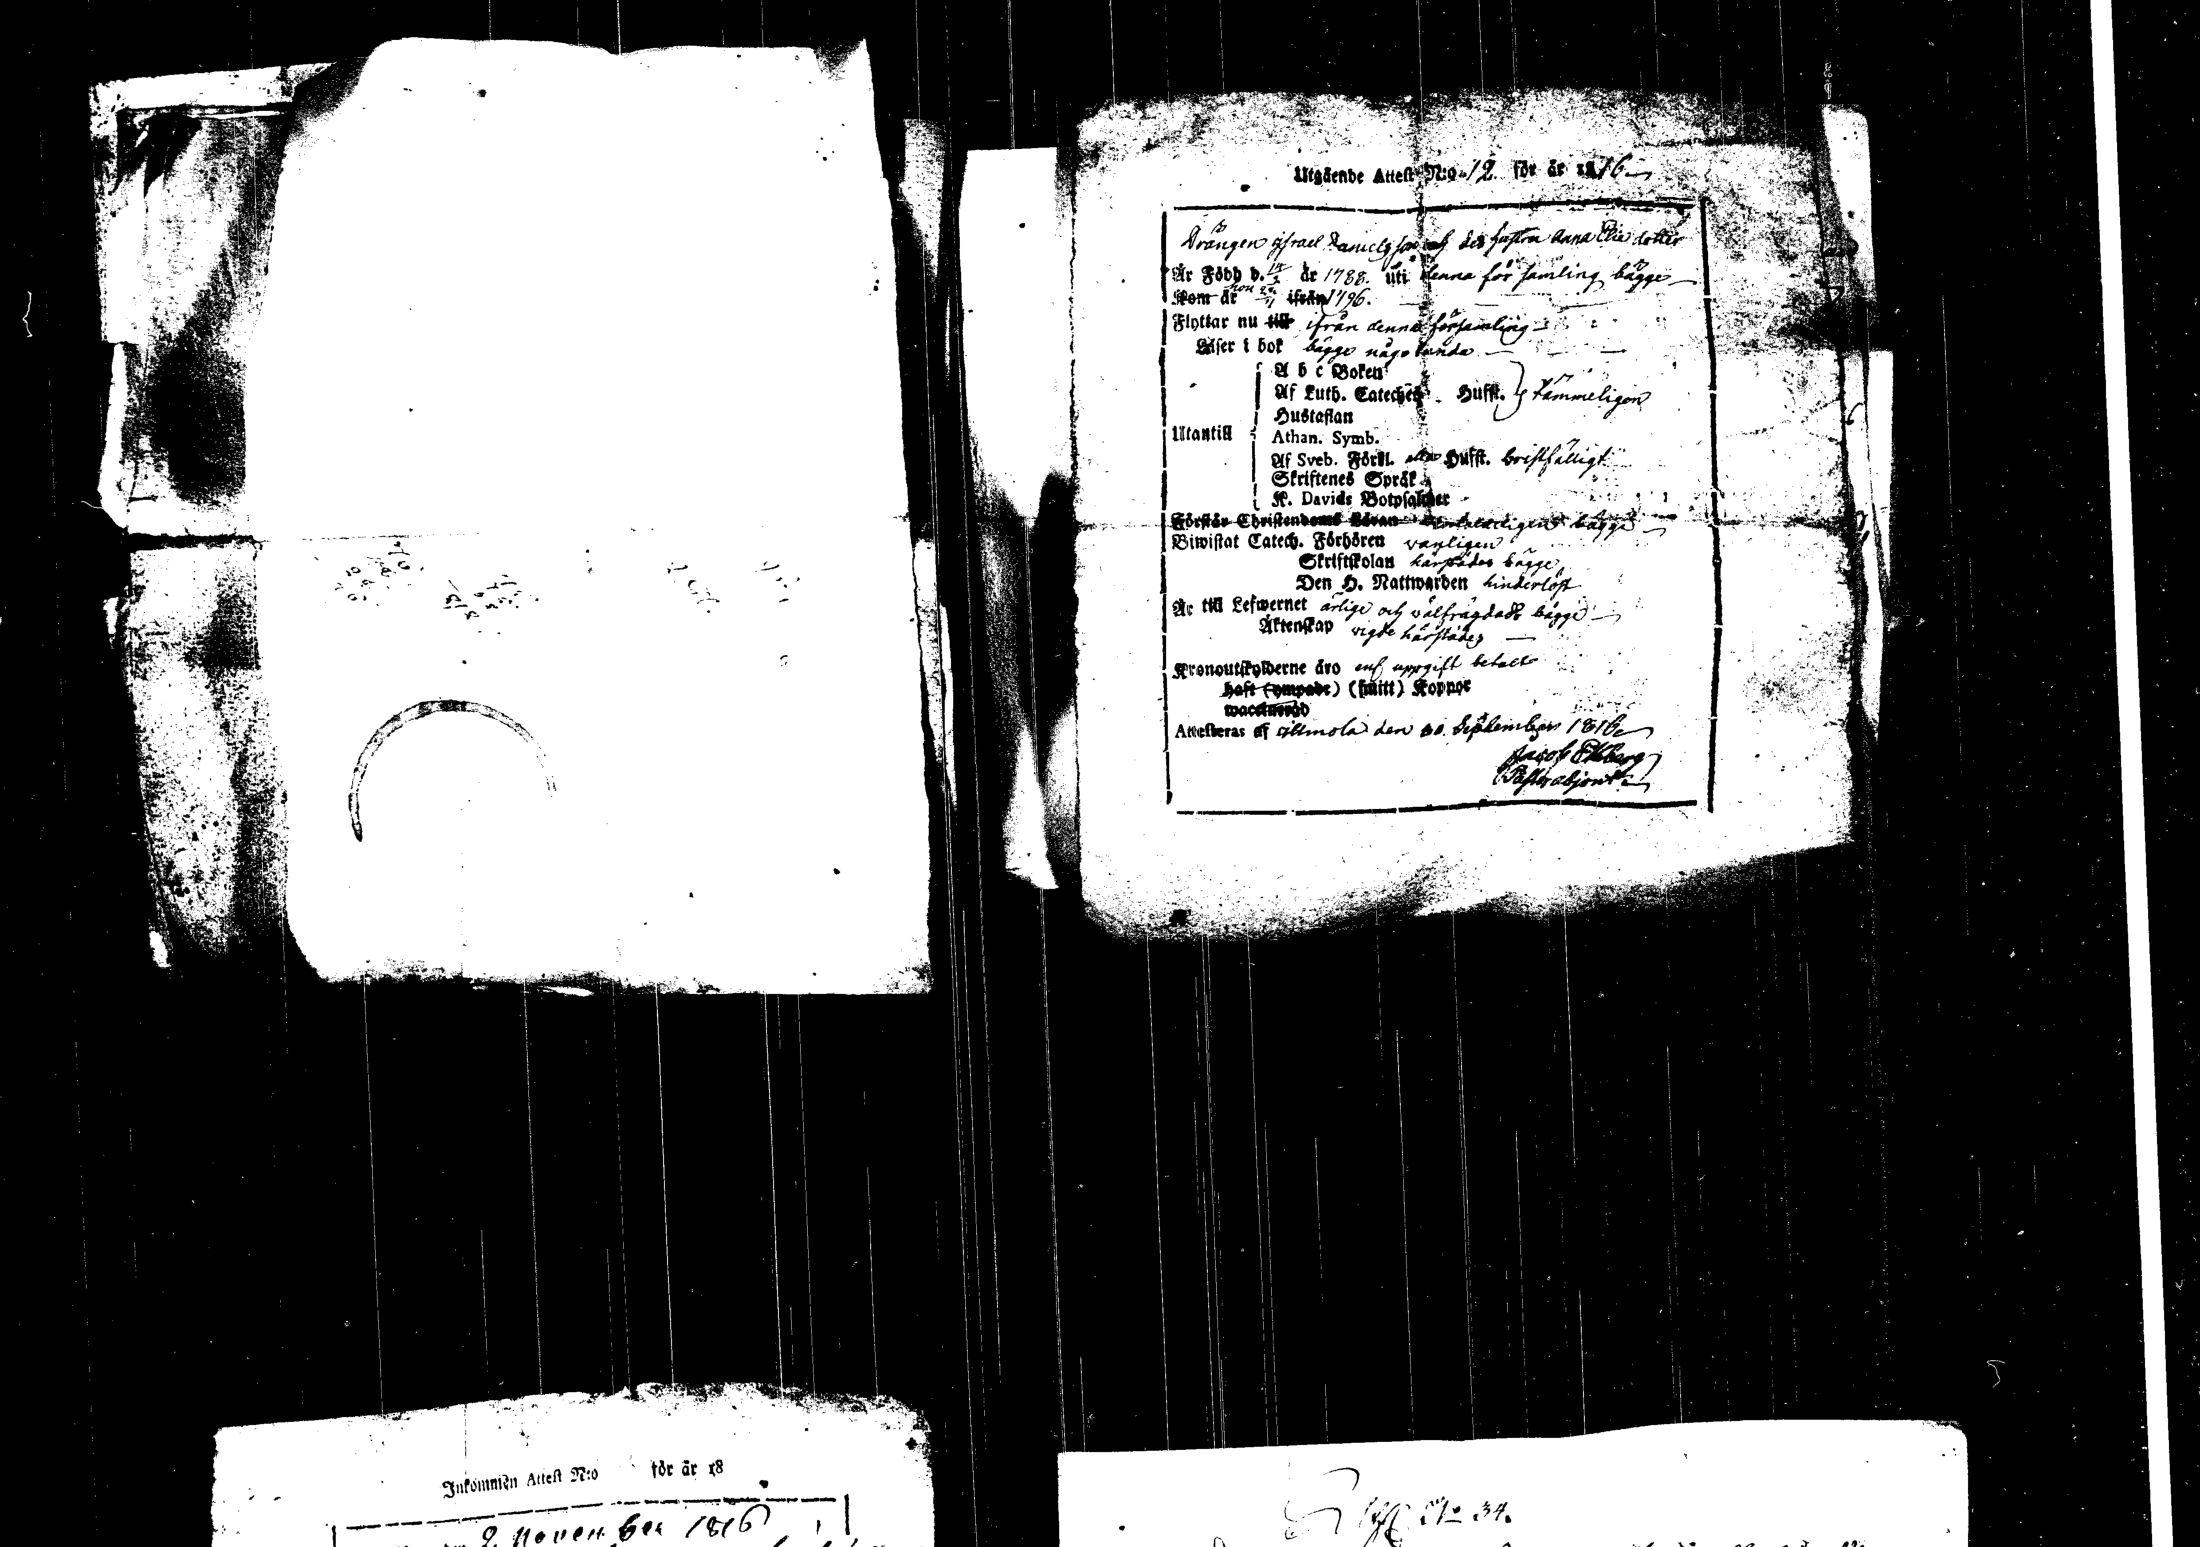 Utgående Attest N:o 12 för år 1816
Drängen Israel Danielsson och des hustru Anna Elie dotter
Är Född d. 14/3 år 1788. uti denna för samling bägge
Kom år hon 24/11 ifrån 1796.
Flyttar nu till ifrån denna församling
Läser i bok bägge någorlunda
A b c Boken
Af Luth. Cateches Hufst. } Tämmeligen
Hustaflan
Utantill Athan. Symb.
Af Sveb. Förkl. Hufst. bristfälligt
Skriftenes Språk
K. Davids Botpsalmer
Förstår Christendoms Läran bägge
Biwistat Catech. Förhören vanligen
Skriftskolan härstädes bägge
Den H. Nattwarden hinderlöst
Är till Lefwernet ärlige och välfrägdade bägge
Äktenskap vigde härstädes
Kronoutskylderne äro enl. uppgift betalte
haft (ympade) (smitt) Koppor
waccinerad
Attesteras af Ilmola den 30. September 1816
Jacob Ekberg
Past. adjunct
Inkommen Attest N:o för år 18
2 November 1816
N:o 34.